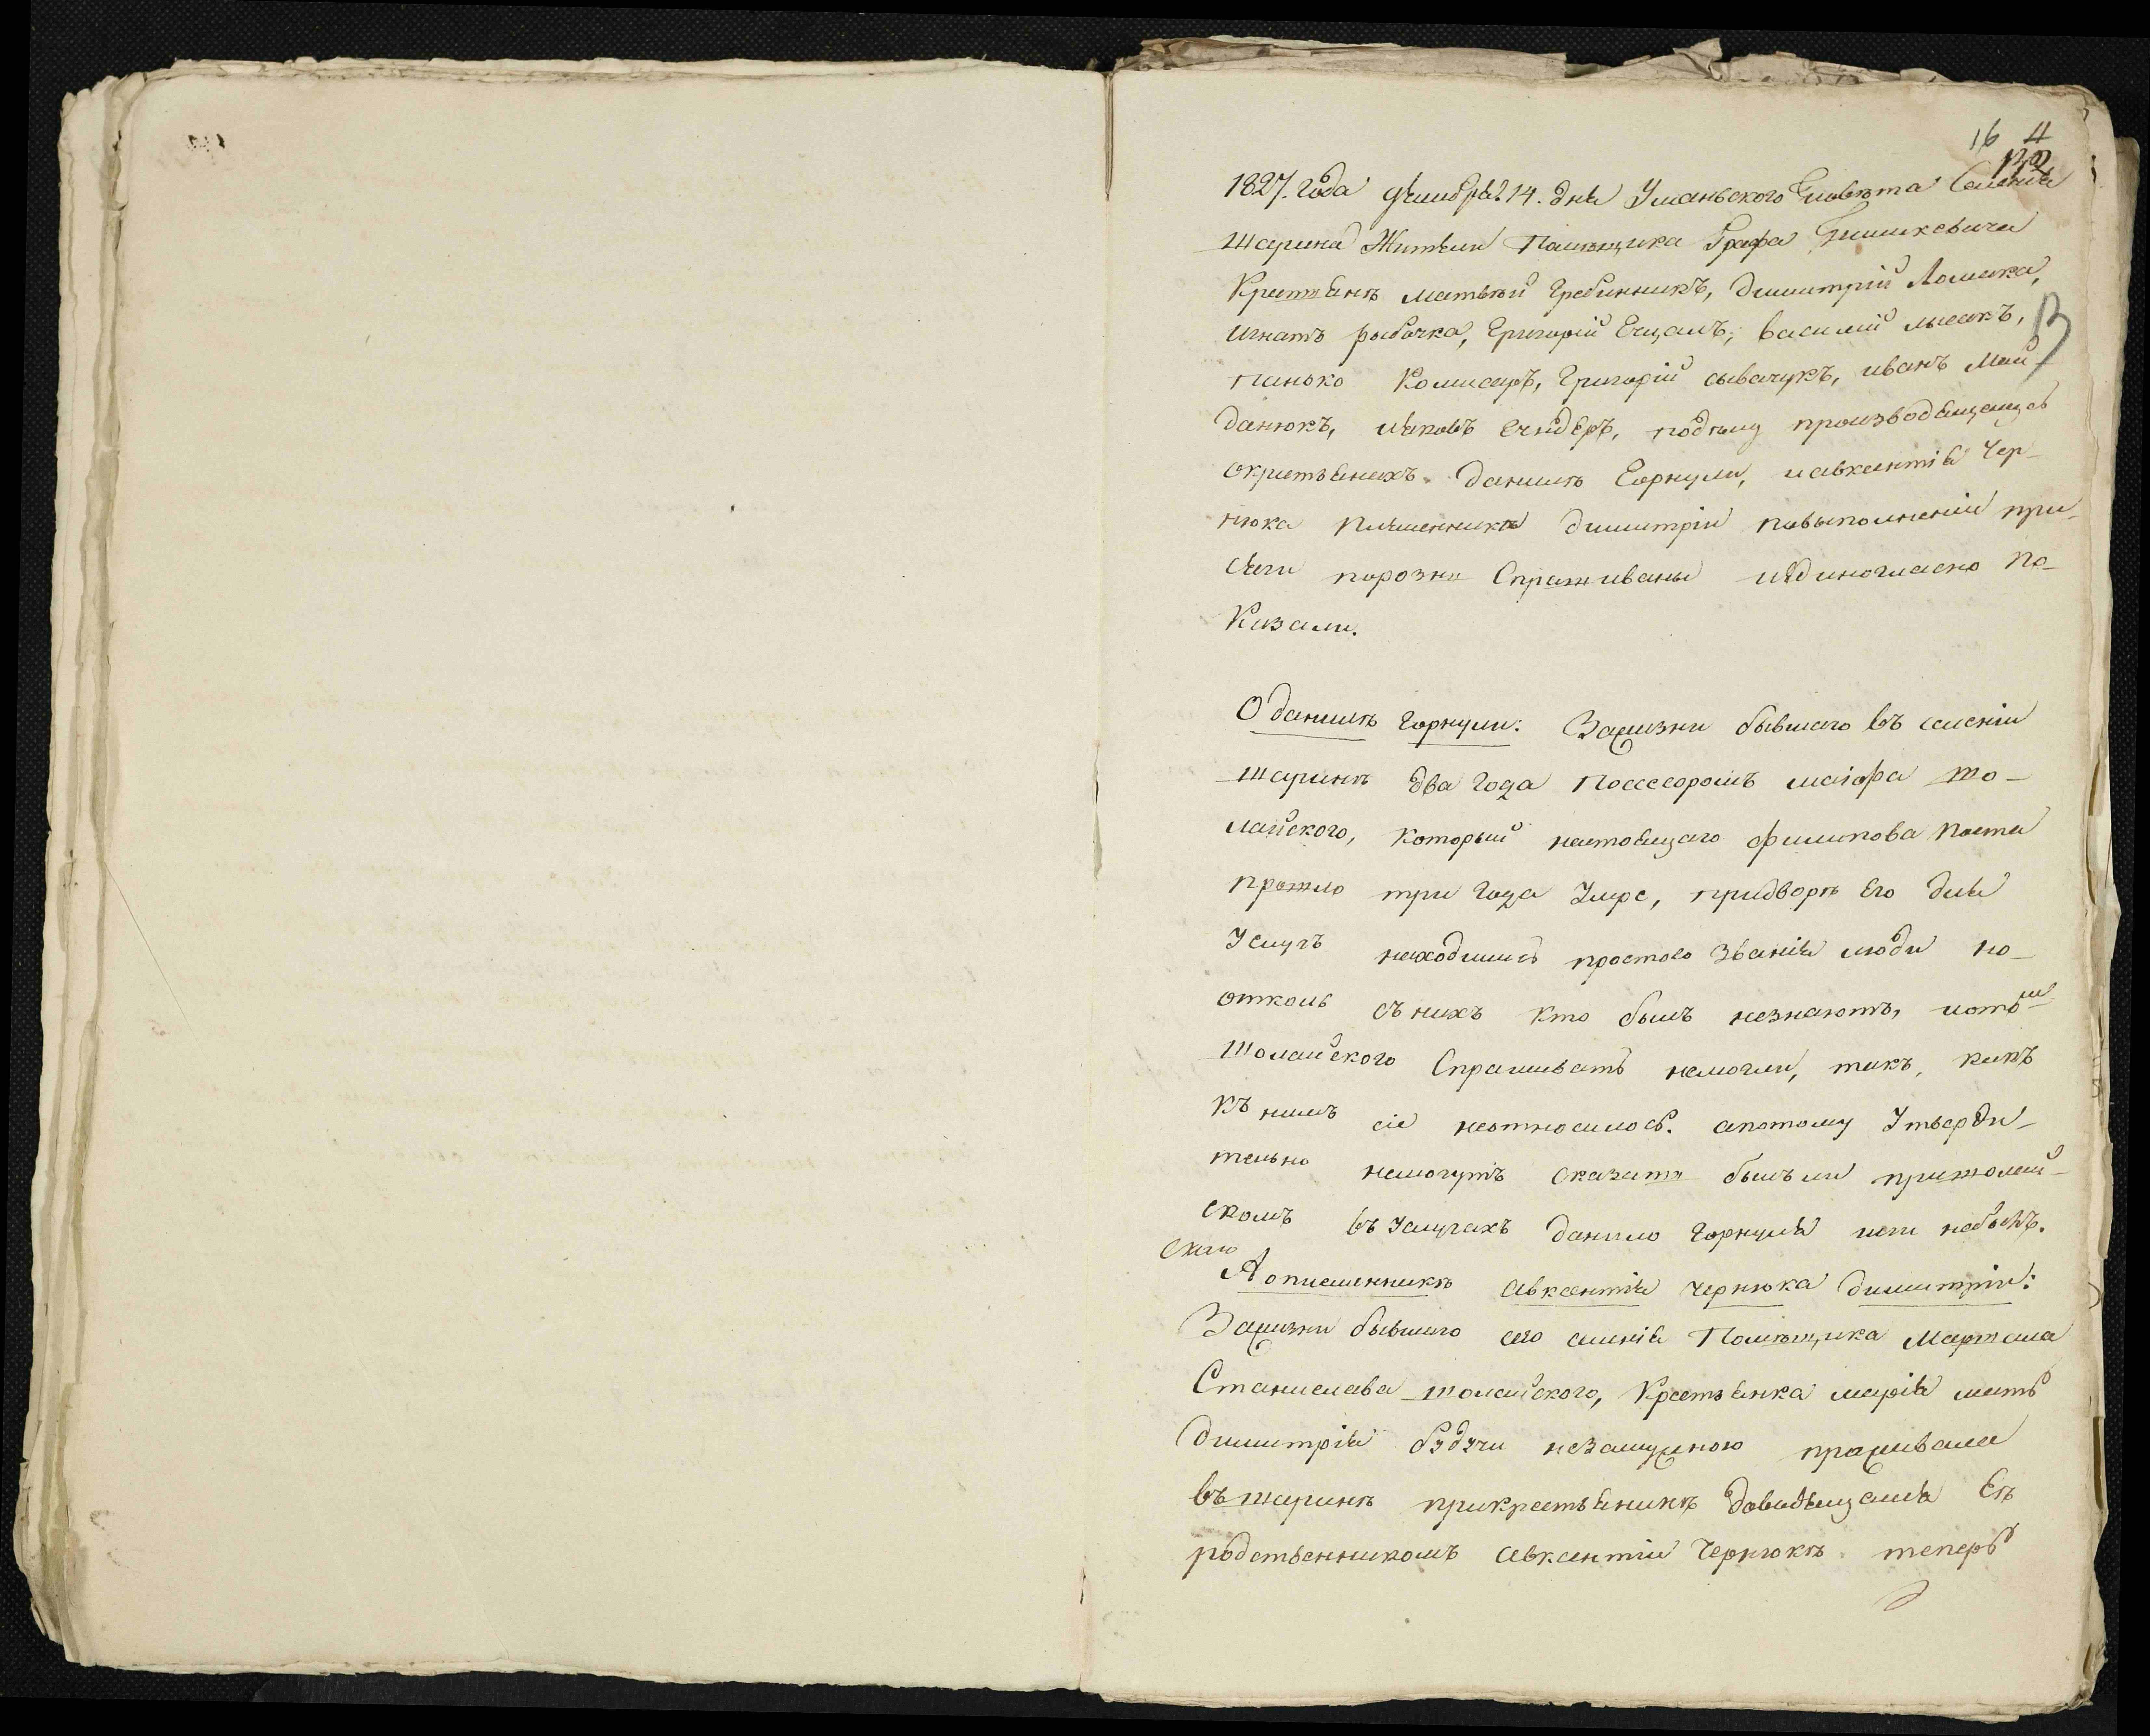 16 4
132
1827. года декабря 14. дня Уманьского Повѣта Селенія
Шарина Жители Помѣщика Графа Тишкевича
Крестьянѣ матвѣй Гребинникъ, димитрій Ломака,
13
игнатъ рыбачка, Григорій Ещамъ, василій лысакъ,
панько комисаръ, Григорій сывачукъ, иванъ Май-
данюкъ, иаковъ ечидеръ, подѣлу производящемусь
окрестьянахъ. даниилѣ Горкули, иавксентія Чер-
нюка племенникѣ димитріи повыполненіи при-
сяги порознь Спрашиваны иединогласно по-
казали.
О данилѣ Горкули: Зажизни бывшаго въ селеніи
шаринѣ два года поссесоромъ маіора шо-
лайского, который настоящаго филипова поста
прошло три года Умре, придворѣ Его для
Услугъ находились простого Званія люди но
отколь съ нихъ кто былъ незнаютъ, иотъ
Шолайского Спрашивать немогли, такъ, какъ
къ нимъ сіе неотносилось. апотому Утверди-
тельно немогутъ сказать былъ ли пришолай-
скомъ въ Услугахъ данило Горкуля или небылъ.
Аоплеменникѣ авксентія чернюка димитріи:
Зажизни бывшаго сего селенія Помѣщика Маршала
Станислава шолайского, Крестьянка марія мать
димитрія будучи незамужною проживала
въ шаринѣ прикрестьянинѣ Ея
родственникомъ авксентіи Чернюкѣ. теперь